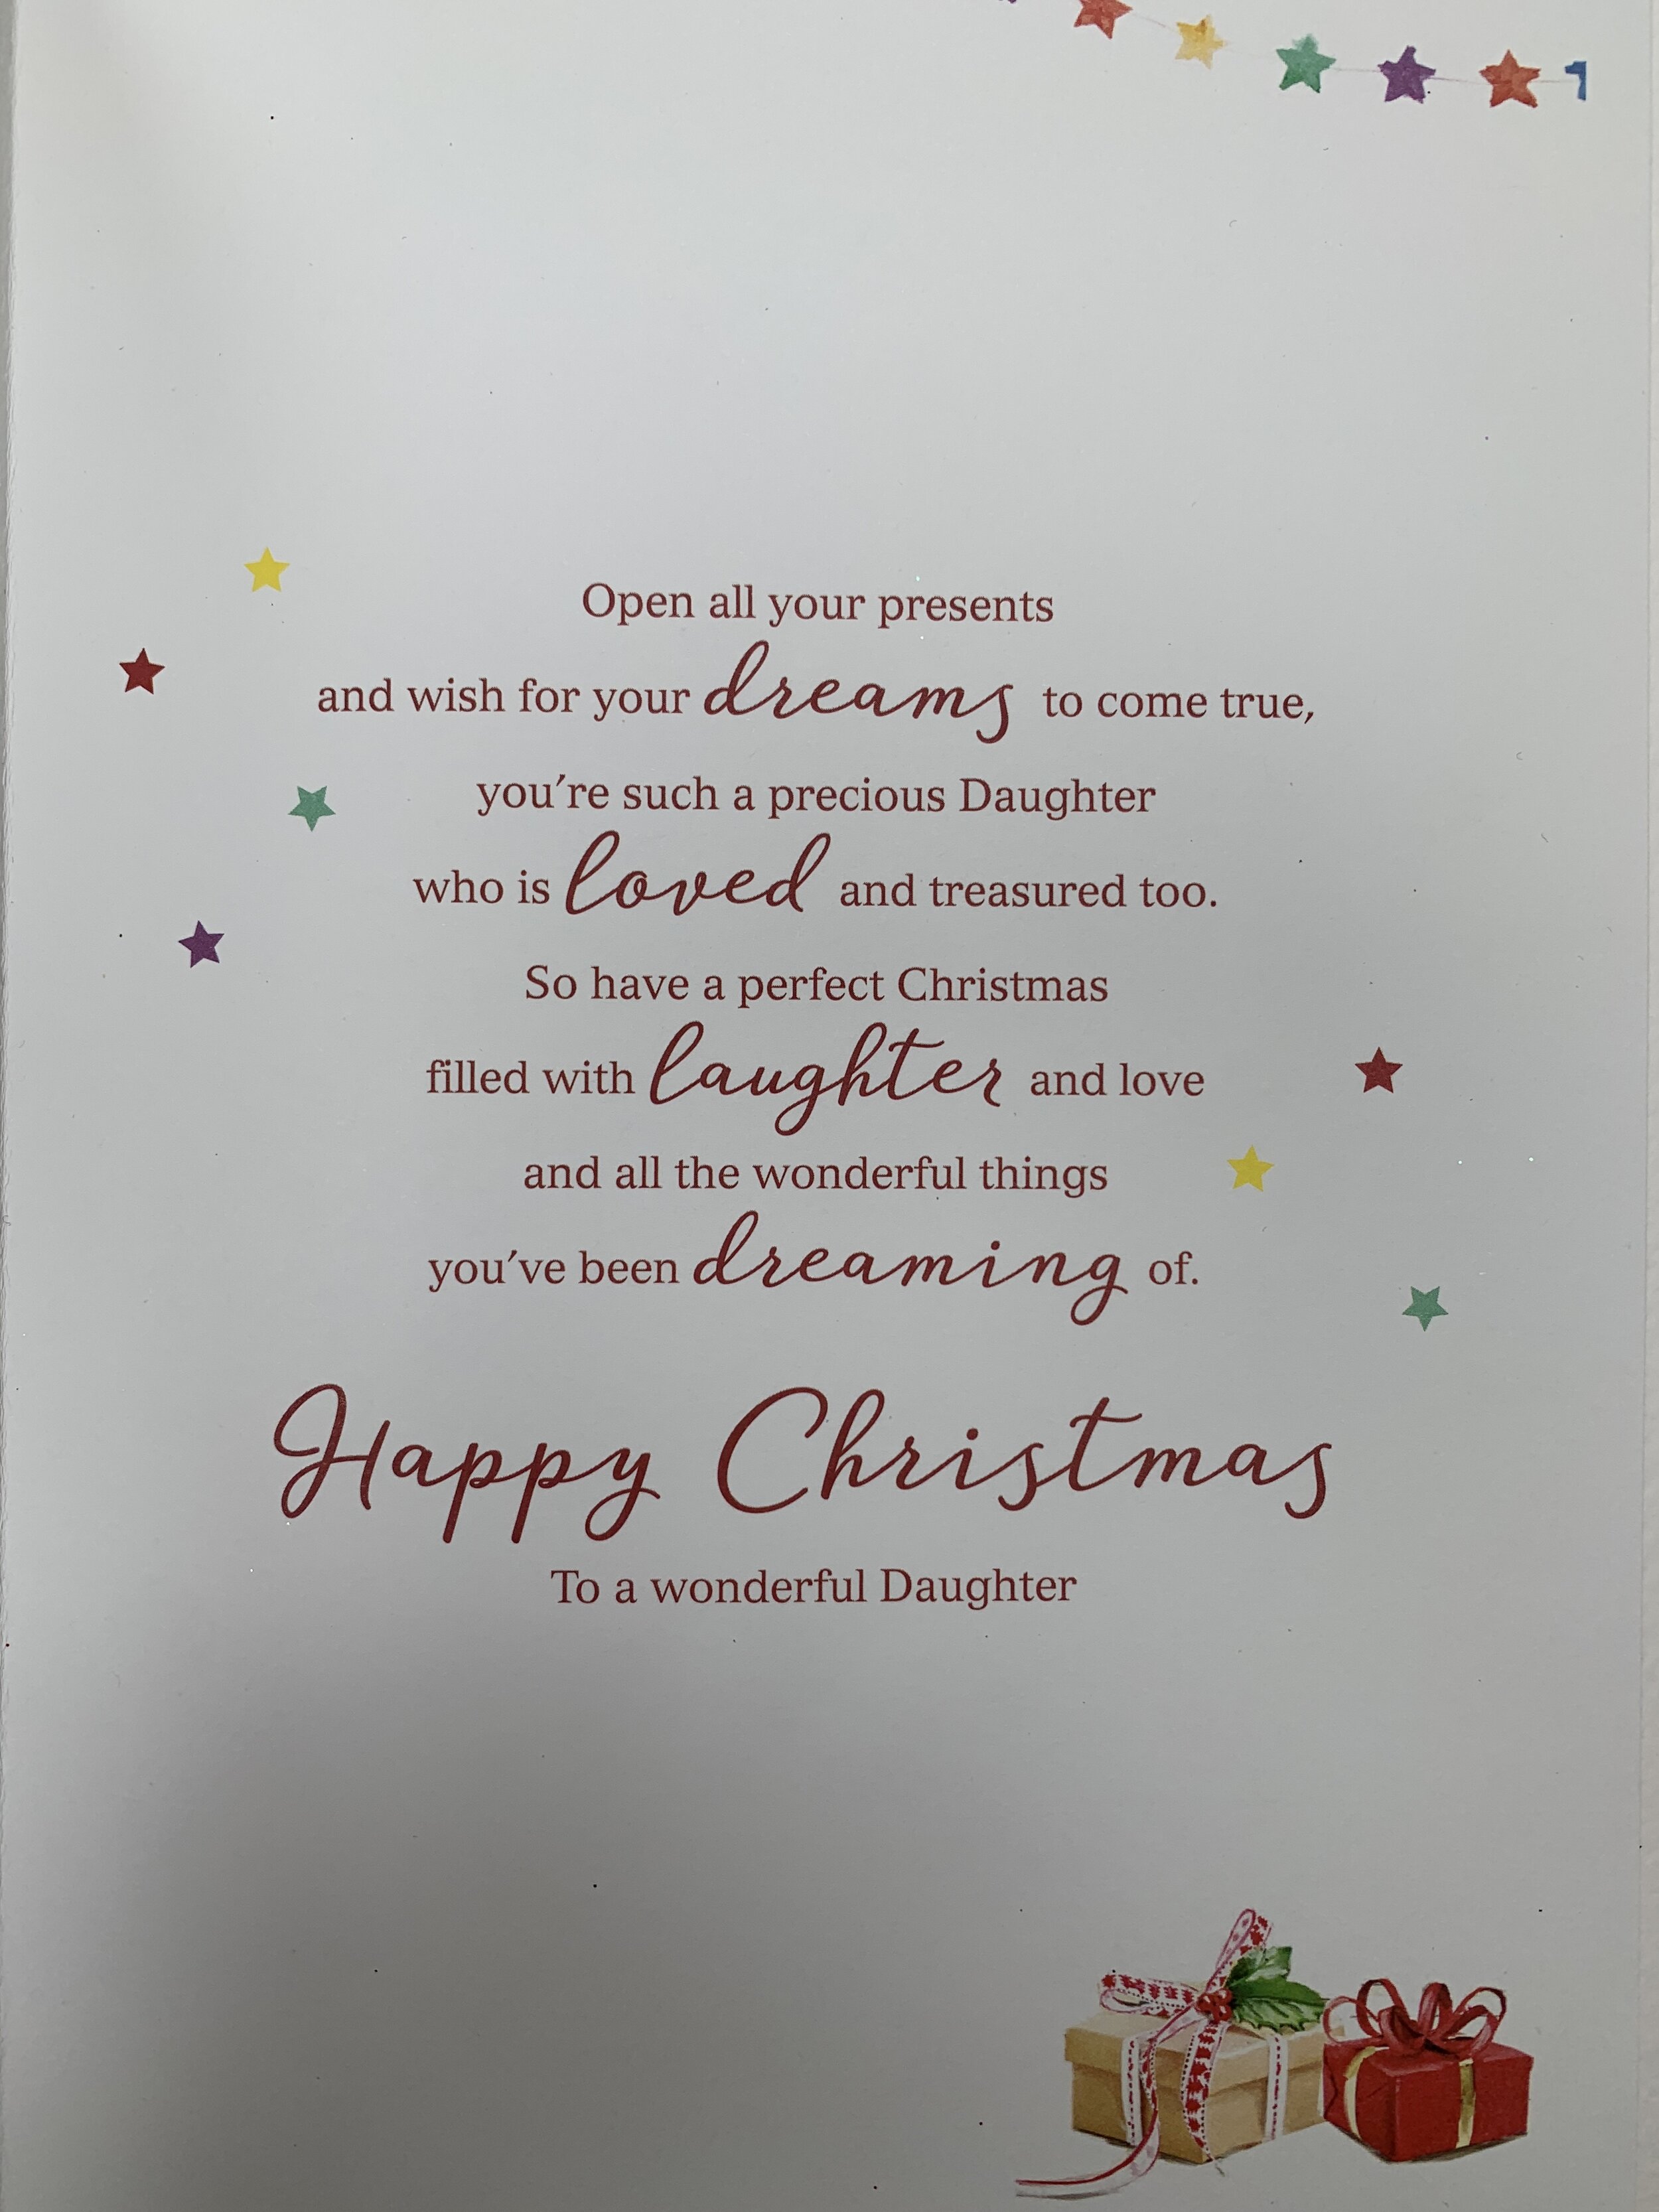 Open all your presents
and wish for your dreams to come true,
you're such a precious Daughter
who is loved and treasured too.
So have a perfect Christmas
filled with laughter and love
and all the wonderful things
you've been dreaming of.
Happy Christmas
To a wonderful Daughter